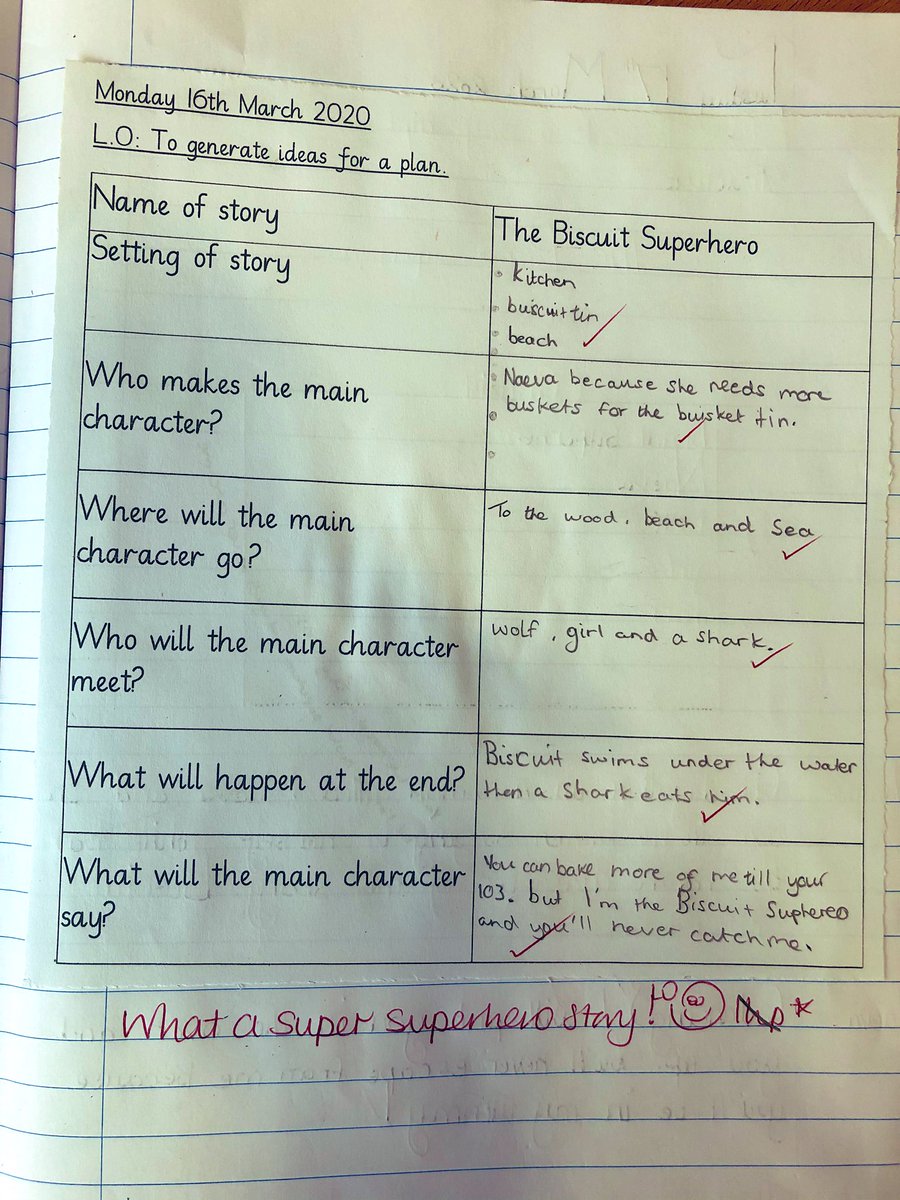 Monday 16th March 2020
L.O: To generate ideas for a plan.
Name of story
The Biscuit Superhero
Setting of story
kitchen
buiscuit tin
beach
Who makes the main
character?
Naeva because she needs more
buskets for the buisket tin.
Where will the main
character go?
To the wood, beach and Sea
Who will the main character
meet?
wolf, girl and a shark.
What will happen at the end?
Biscuit swims under the water
then a Shark eats him.
What will the main character
say?
You can bake more of me till your
103. but I'm the Biscuit Suphereo
and you'll never catch me.
What a super superhero story!